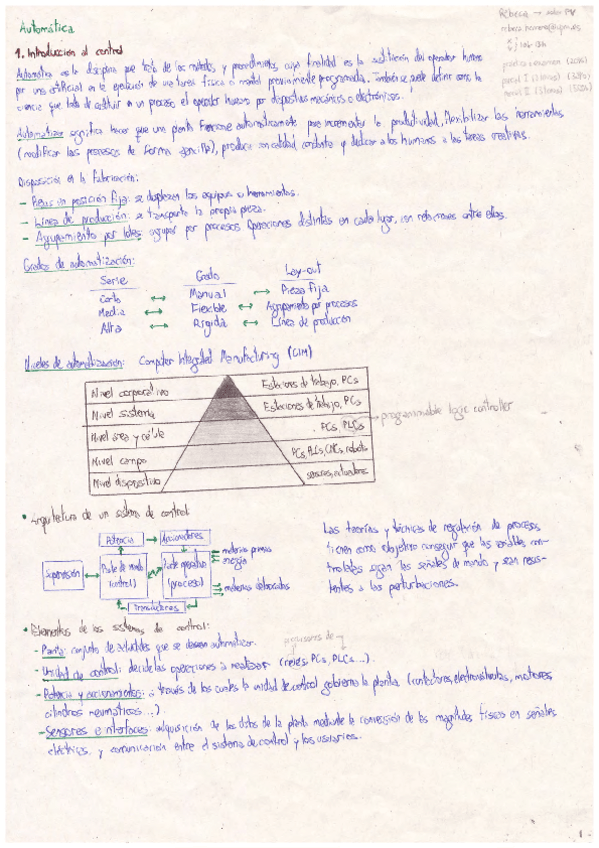 Automática
Rebeca → salar
1. Introducción al control
Automática es la disciplina que trata de los métodos y procedimientos cuya finalidad es la sustitución del operador humano
por uno artificial en la ejecución de una tarea física o mental previamente programada. También se puede definir como la
ciencia que trata de sustituir en un proceso el operador humano por dispositivos mecánicos o electrónicos.
practica + examen (20%)
parcial I (3 temas) (30%)
parcial II (3 temas) (50%)
Automatizar significa hacer que una planta funcione automáticamente para incrementar la productividad, flexibilizar las herramientas
(modificar los procesos de forma sencilla), producir con calidad constante y dedicar a los humanos a las tareas creativas.
Disposición en la fabricación:
- Pieza en posición fija: se desplazan los equipos o herramientas.
- Línea de producción: se transporta la propia pieza.
- Agrupamiento por lotes: agrupar por procesos. Operaciones distintas en cada lugar, con relaciones entre ellas.
Grados de automatización:
Serie Grado Lay-out
Corta ↔ Manual ↔ Pieza fija
Media ↔ Flexible ↔ Agrupamiento por procesos
Alta ↔ Rígida ↔ Línea de producción
Niveles de automatización: Computer Integrated Manufacturing (CIM)
Nivel corporativo Estaciones de trabajo, PCs
Nivel sistema Estaciones de trabajo, PCs
Nivel área y célula PCs, PLCs → programmable logic controller
Nivel campo PCs, PLCs, CNCs, robots
Nivel dispositivo sensores, actuadores
• Arquitectura de un sistema de control
Potencia → Accionadores
Supervisión
Parte de mando (control)
Parte operativa (proceso)
materias primas
energía
materias elaboradas
Transductores
Las teorías y técnicas de regulación de procesos
tienen como objetivo conseguir que las variables con-
troladas sigan las señales de mando y sean resis-
tentes a las perturbaciones.
• Elementos de los sistemas de control:
- Planta: conjunto de actividades que se desean automatizar.
- Unidad de control: decide las operaciones a realizar (relés, PCs, PLCs...).
- Potencia y accionamientos: a través de los cuales la unidad de control gobierna la planta (contactores, electroválvulas, motores,
cilindros neumáticos...).
- Sensores e interfaces: adquisición de los datos de la planta mediante la conversión de las magnitudes físicas en señales
eléctricas, y comunicación entre el sistema de control y los usuarios.
1